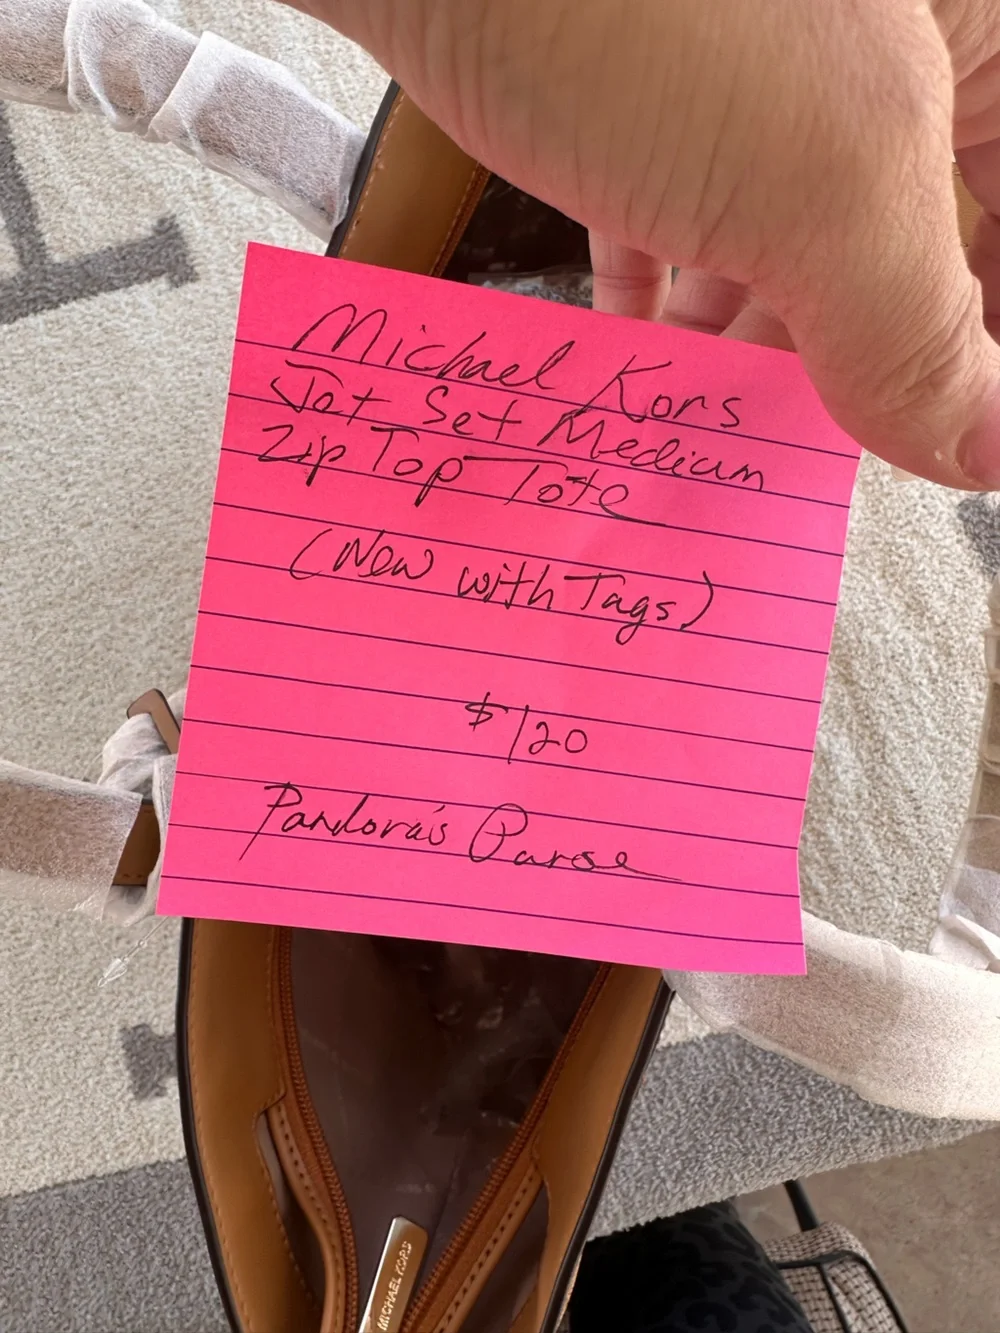 Michael Kors
Jet Set Medium
Zip Top Tote
(New with Tags)
$120
Pandora's Purse
MICHAEL KORS